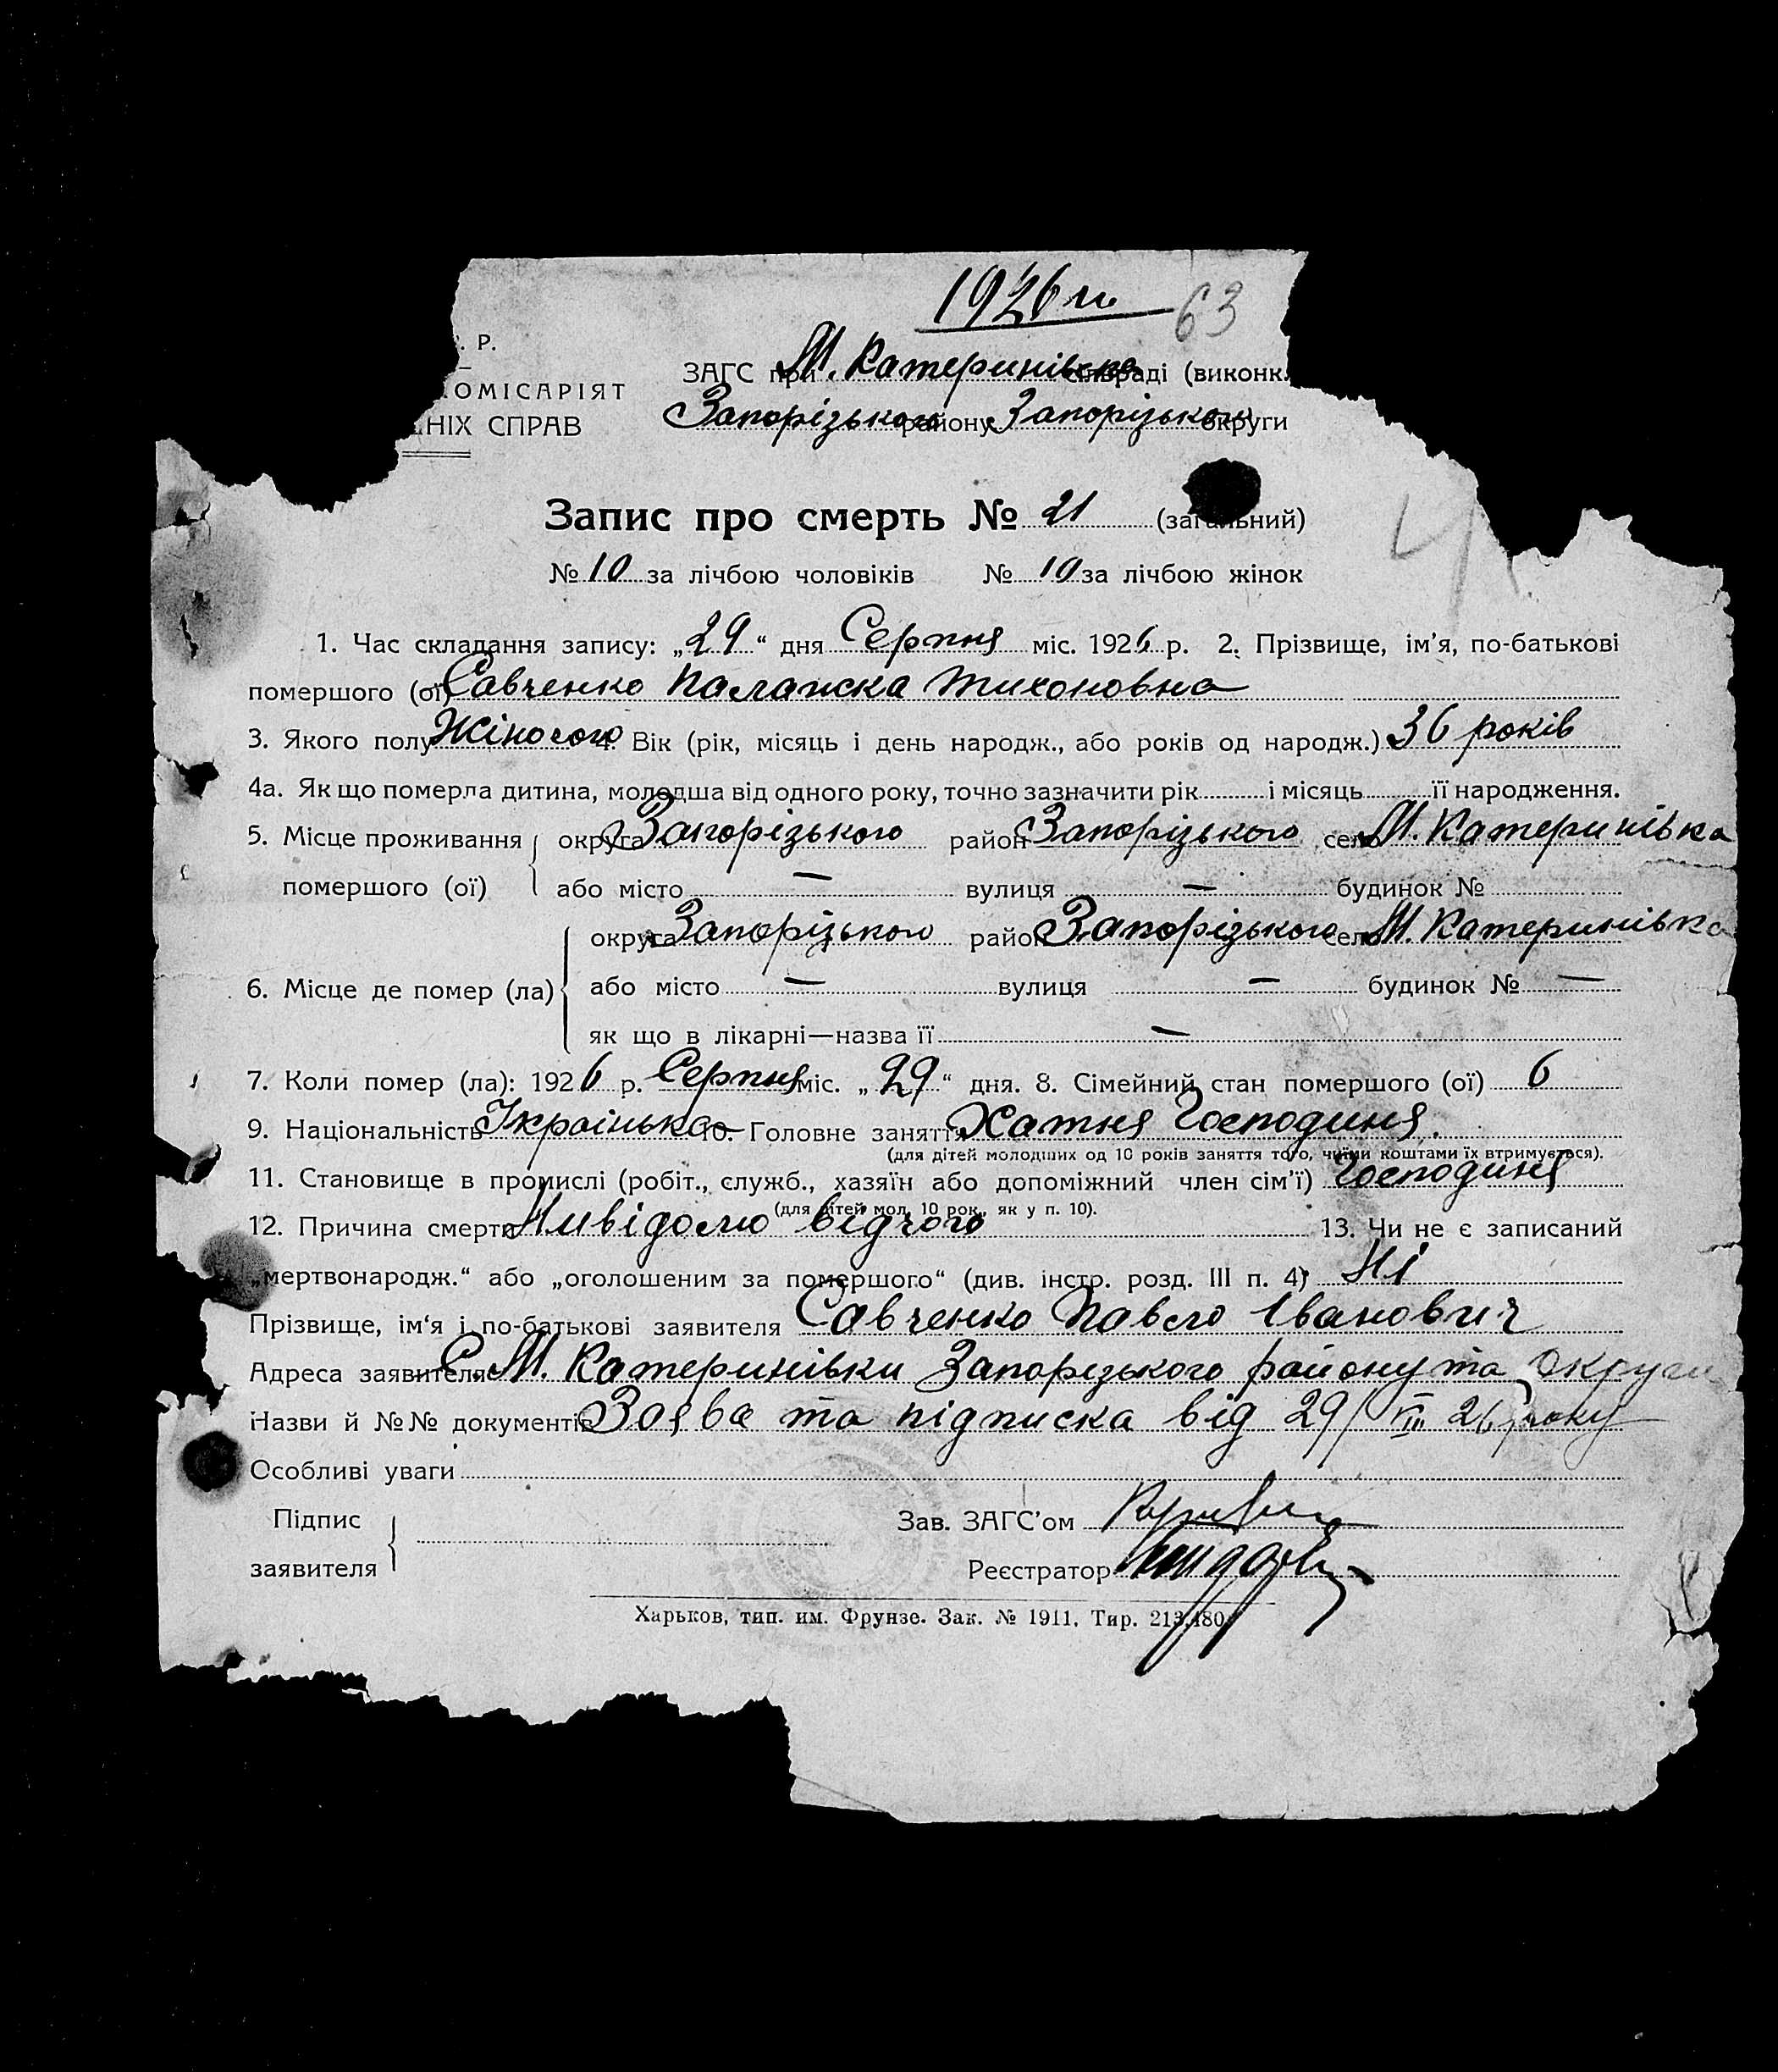 1926 г.
63
. Р.
ОМІСАРІЯТ
НІХ СПРАВ
ЗАГС при М. Катеринівська сільраді (виконк.
Запорізького району Запорізького округи
Запис про смерть № 21 (загальний)
№ 10 за лічбою чоловіків № 10 за лічбою жінок
1. Час складання запису: „29“ дня Серпня міс. 1926 р. 2. Прізвище, ім'я, по-батькові
помершого (ої) Савченко Палажка Тихоновна
3. Якого полу Жіночого 4. Вік (рік, місяць і день народж., або років од народж.) 36 років
4а. Як що померла дитина, молодша від одного року, точно зазначити рік і місяць її народження.
5. Місце проживання округа Запорізького район Запорізького село М. Катеринівка
помершого (ої) або місто — вулиця — будинок №
округа Запорізького район Запорізького село М. Катеринівка
6. Місце де помер (ла) або місто — вулиця — будинок № —
як що в лікарні—назва її —
7. Коли помер (ла): 1926 р. Серпня міс. „29“ дня. 8. Сімейний стан помершого (ої) 6
9. Національність Українська 10. Головне заняття Хатня Господиня.
(для дітей молодших од 10 років заняття того, чиїми коштами їх втримується).
11. Становище в промислі (робіт., служб., хазяїн або допоміжний член сім'ї) Господиня
(для дітей мол. 10 рок., як у п. 10).
12. Причина смерти Нивідомо відчого 13. Чи не є записаний
„мертвонародж.“ або „оголошеним за померш­ого“ (див. інстр. розд. III п. 4) Ні
Прізвище, ім'я і по-батькові заявителя Савченко Павло Іванович
Адреса заявителя С. М. Катеринівки Запорізького району та Округи
Назви й №№ документів Заява та підписка від 29/VIII 26 року
Особливі уваги
Підпис
заявителя
Зав. ЗАГС'ом
Реєстратор
Харьков, тип. им. Фрунзе. Зак. № 1911. Тир. 213.480.